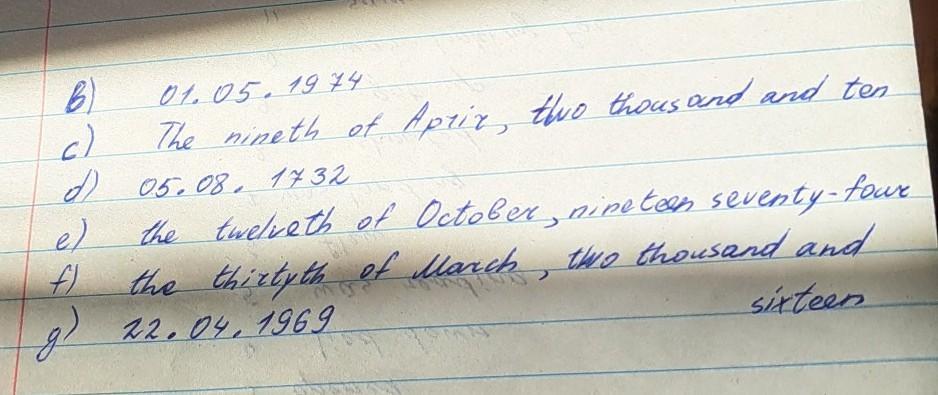 B) 01.05.1974
c) The nineth of Aprir, two thousand and ten
d) 05.08.1732
e) the twelveth of October, nineteen seventy-four
f) the thirtyth of March, two thousand and
sixteen
g) 22.04.1969